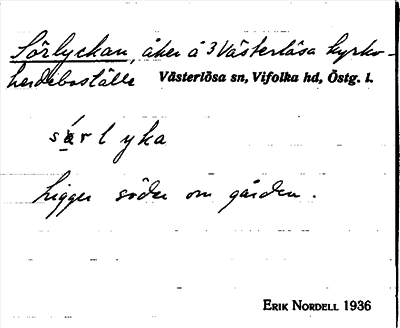 Sörlyckan, åker å 3 Västerlösa kyrko-
herdeboställe Västerlösa sn, Vifolka hd, Östg. l.
särlyka
ligger söder om gården.
ERIK NORDELL 1936